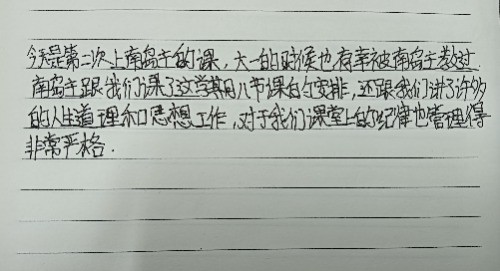 今天是第二次上南岛主的课，大一的时候也有幸被南岛主教过.
南岛主跟我们谋了这学期用八节课自的安排，还跟我们讲了许多
的人生道理和思想工作，对于我们课堂上的纪律也管理得
非常严格.